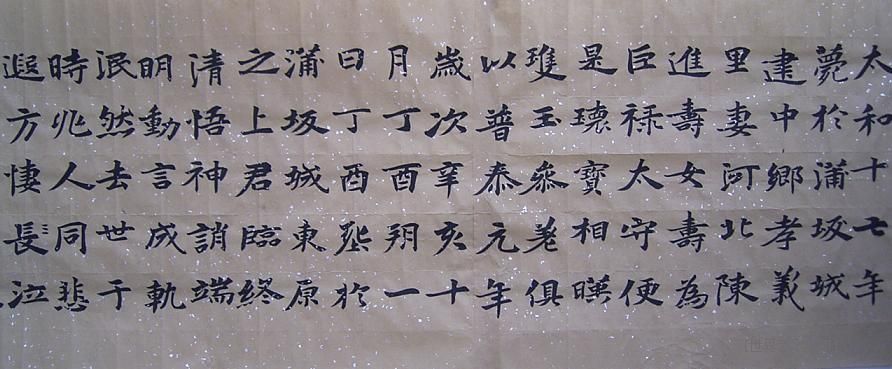 太和十七年
薨於蒲坂城
建中鄉孝義
里妻河北陳
進壽女壽為
巨祿太守便
是瓌寶相暎
瓊玉參差俱
以普泰元年
歲次辛亥十
月丁酉朔一
日丁酉塟於
蒲坂城東原
之上君臨終
清悟神誚端
明動言成軌
泯然去世于
時兆人同悲
遐方悽長〻泣